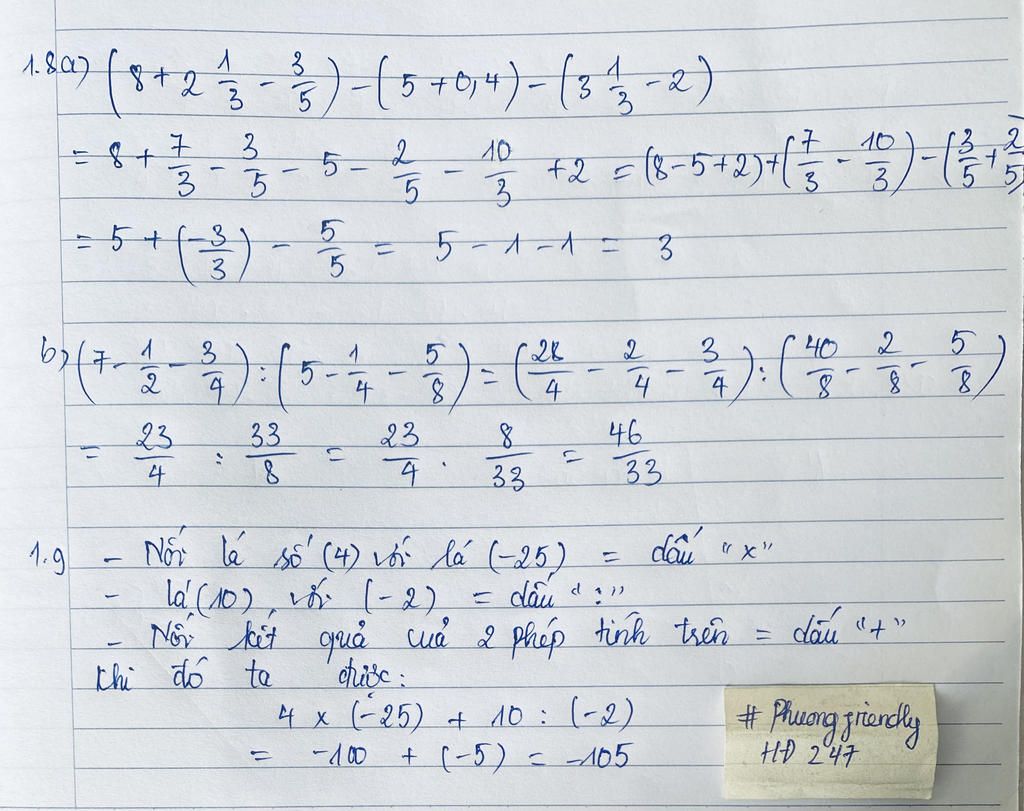 1.8a) (8 + 2 1/3 - 3/5) - (5 + 0,4) - (3 1/3 - 2)
= 8 + 7/3 - 3/5 - 5 - 2/5 - 10/3 + 2 = (8 - 5 + 2) + (7/3 - 10/3) - (3/5 + 2/5)
= 5 + (-3/3) - 5/5 = 5 - 1 - 1 = 3
b) (7 - 1/2 - 3/4) : (5 - 1/4 - 5/8) = (28/4 - 2/4 - 3/4) : (40/8 - 2/8 - 5/8)
= 23/4 : 33/8 = 23/4 . 8/33 = 46/33
1.9 - Nối lá số (4) với lá (-25) = dấu "x"
- lá (10) với (-2) = dấu ":"
- Nối kết quả cuả 2 phép tính trên = dấu "+"
Khi đó ta được:
4 x (-25) + 10 : (-2)
= -100 + (-5) = -105
# Phuongfriendly
HĐ 247